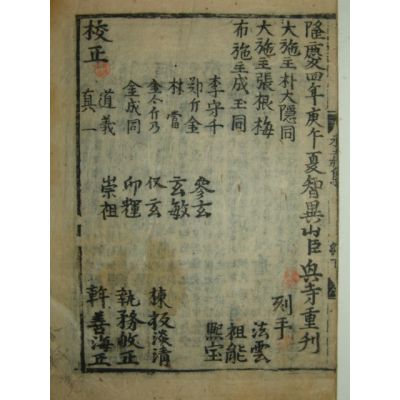 隆慶四年庚午夏智異山臣與寺重刊
大施主朴大隱同 刻手
大施主張根梅 法雲
布施主成玉同 祖能
李守千 參玄 熙宝
鄭介金 玄敏
林雷
金今介乃 玄 板淡清
金成同 印輝 執務敏正
道義 崇祖
校正 真一 幹善海正